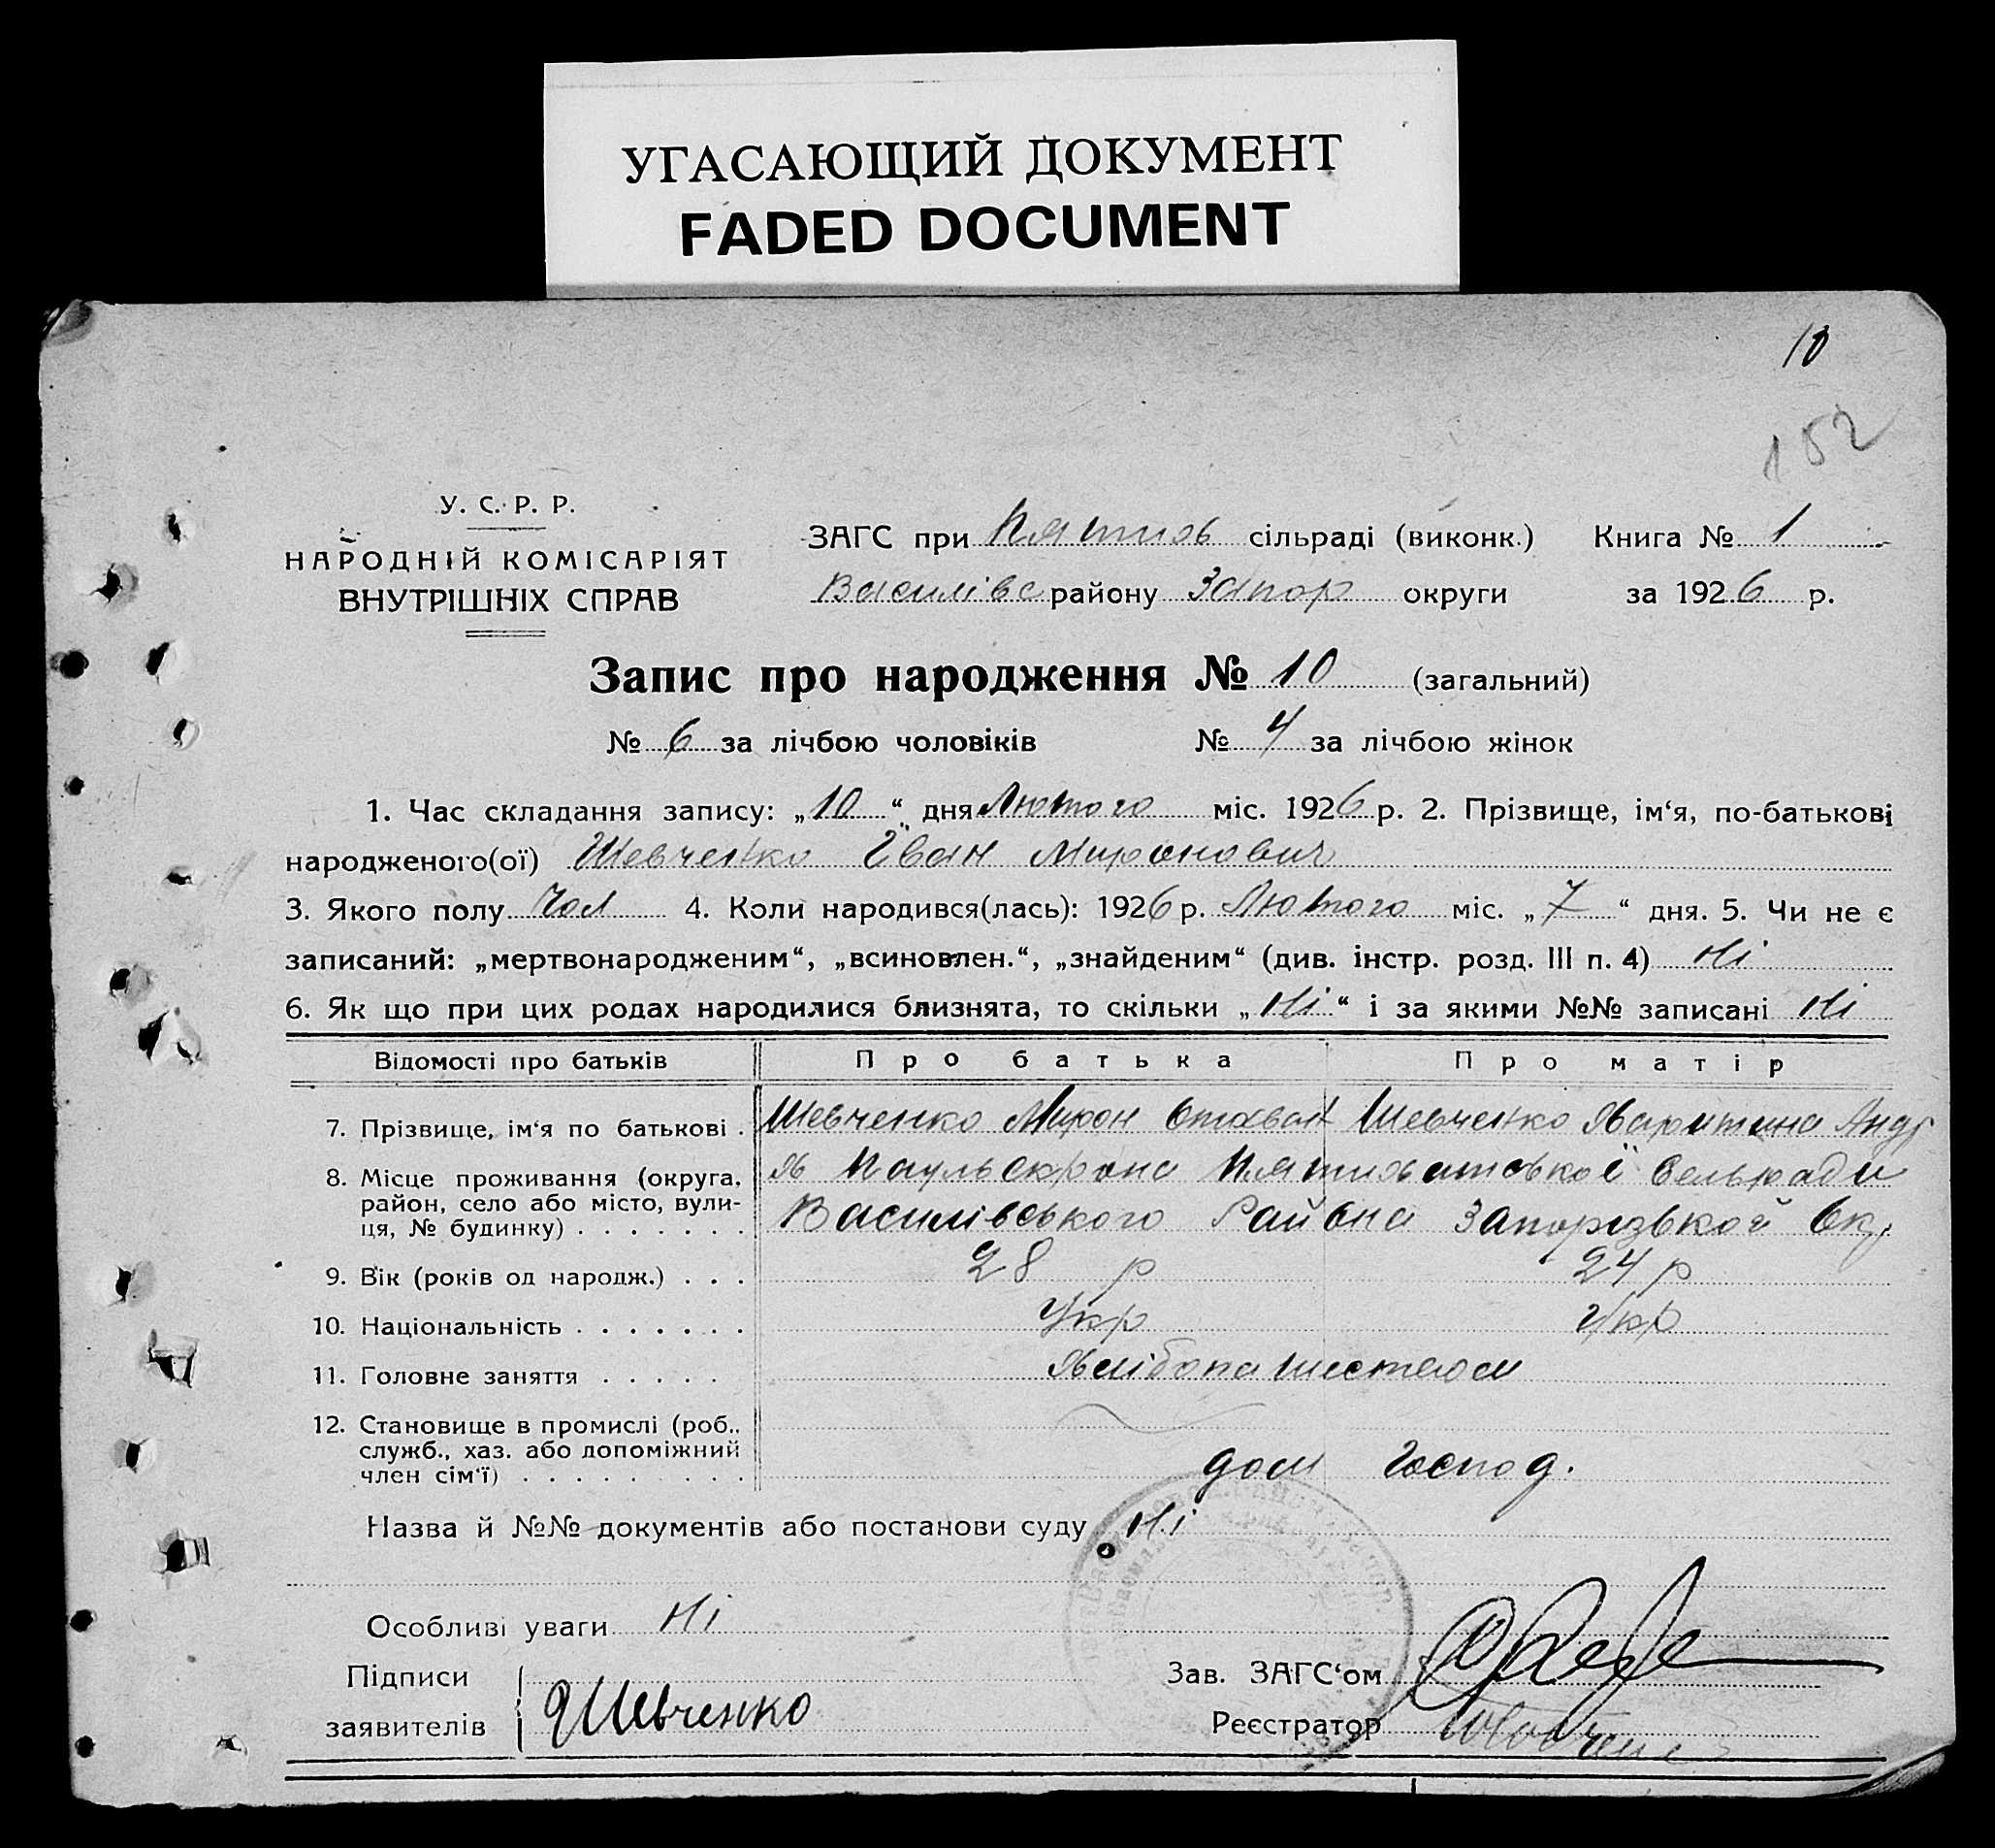 УГАСАЮЩИЙ ДОКУМЕНТ
FADED DOCUMENT
10
152
У. С. Р. Р.
НАРОДНІЙ КОМІСАРІЯТ
ВНУТРІШНІХ СПРАВ
ЗАГС при Пятих сільраді (виконк.) Книга № 1
Василівс району Запор округи за 1926 р.
Запис про народження № 10 (загальний)
№ 6 за лічбою чоловіків № 4 за лічбою жінок
1. Час складання запису: „10“ дня Лютого міс. 1926 р. 2. Прізвище, ім‘я, по-батькові
народженого(ої) Шевченко Іван Миронович
3. Якого полу Чол 4. Коли народився(лась): 1926 р. Лютого міс. „7“ дня. 5. Чи не є
записаний: „мертвонародженим“, „всиновлен.“, „знайденим“ (див. інстр. розд. III п. 4) Ні
6. Як що при цих родах народилися близнята, то скільки „Ні“ і за якими №№ записані Ні
Відомості про батьків Про батька Про матір
7. Прізвище, ім‘я по батькові . Шевченко Мирон Шевченко Харитина Андр
8. Місце проживання (округа, район, село або місто, вулиця, № будинку) . . . . . . . х Паульскрона Пятихатської Сельради
Василівського Района Запорізькой Ок.
9. Вік (років од народж.) . . . 28 р 24 р
10. Національність . . . . . . . Укр Укр
11. Головне заняття . . . . . Хлібопашеством
12. Становище в промислі (роб.,
служб., хаз. або допоміжний
член сім‘ї) . . . . . . . . . дом Господ.
Назва й №№ документів або постанови суду Ні
Особливі уваги Ні
Підписи
заявителів Шевченко
Зав. ЗАГС‘ом
Реєстратор